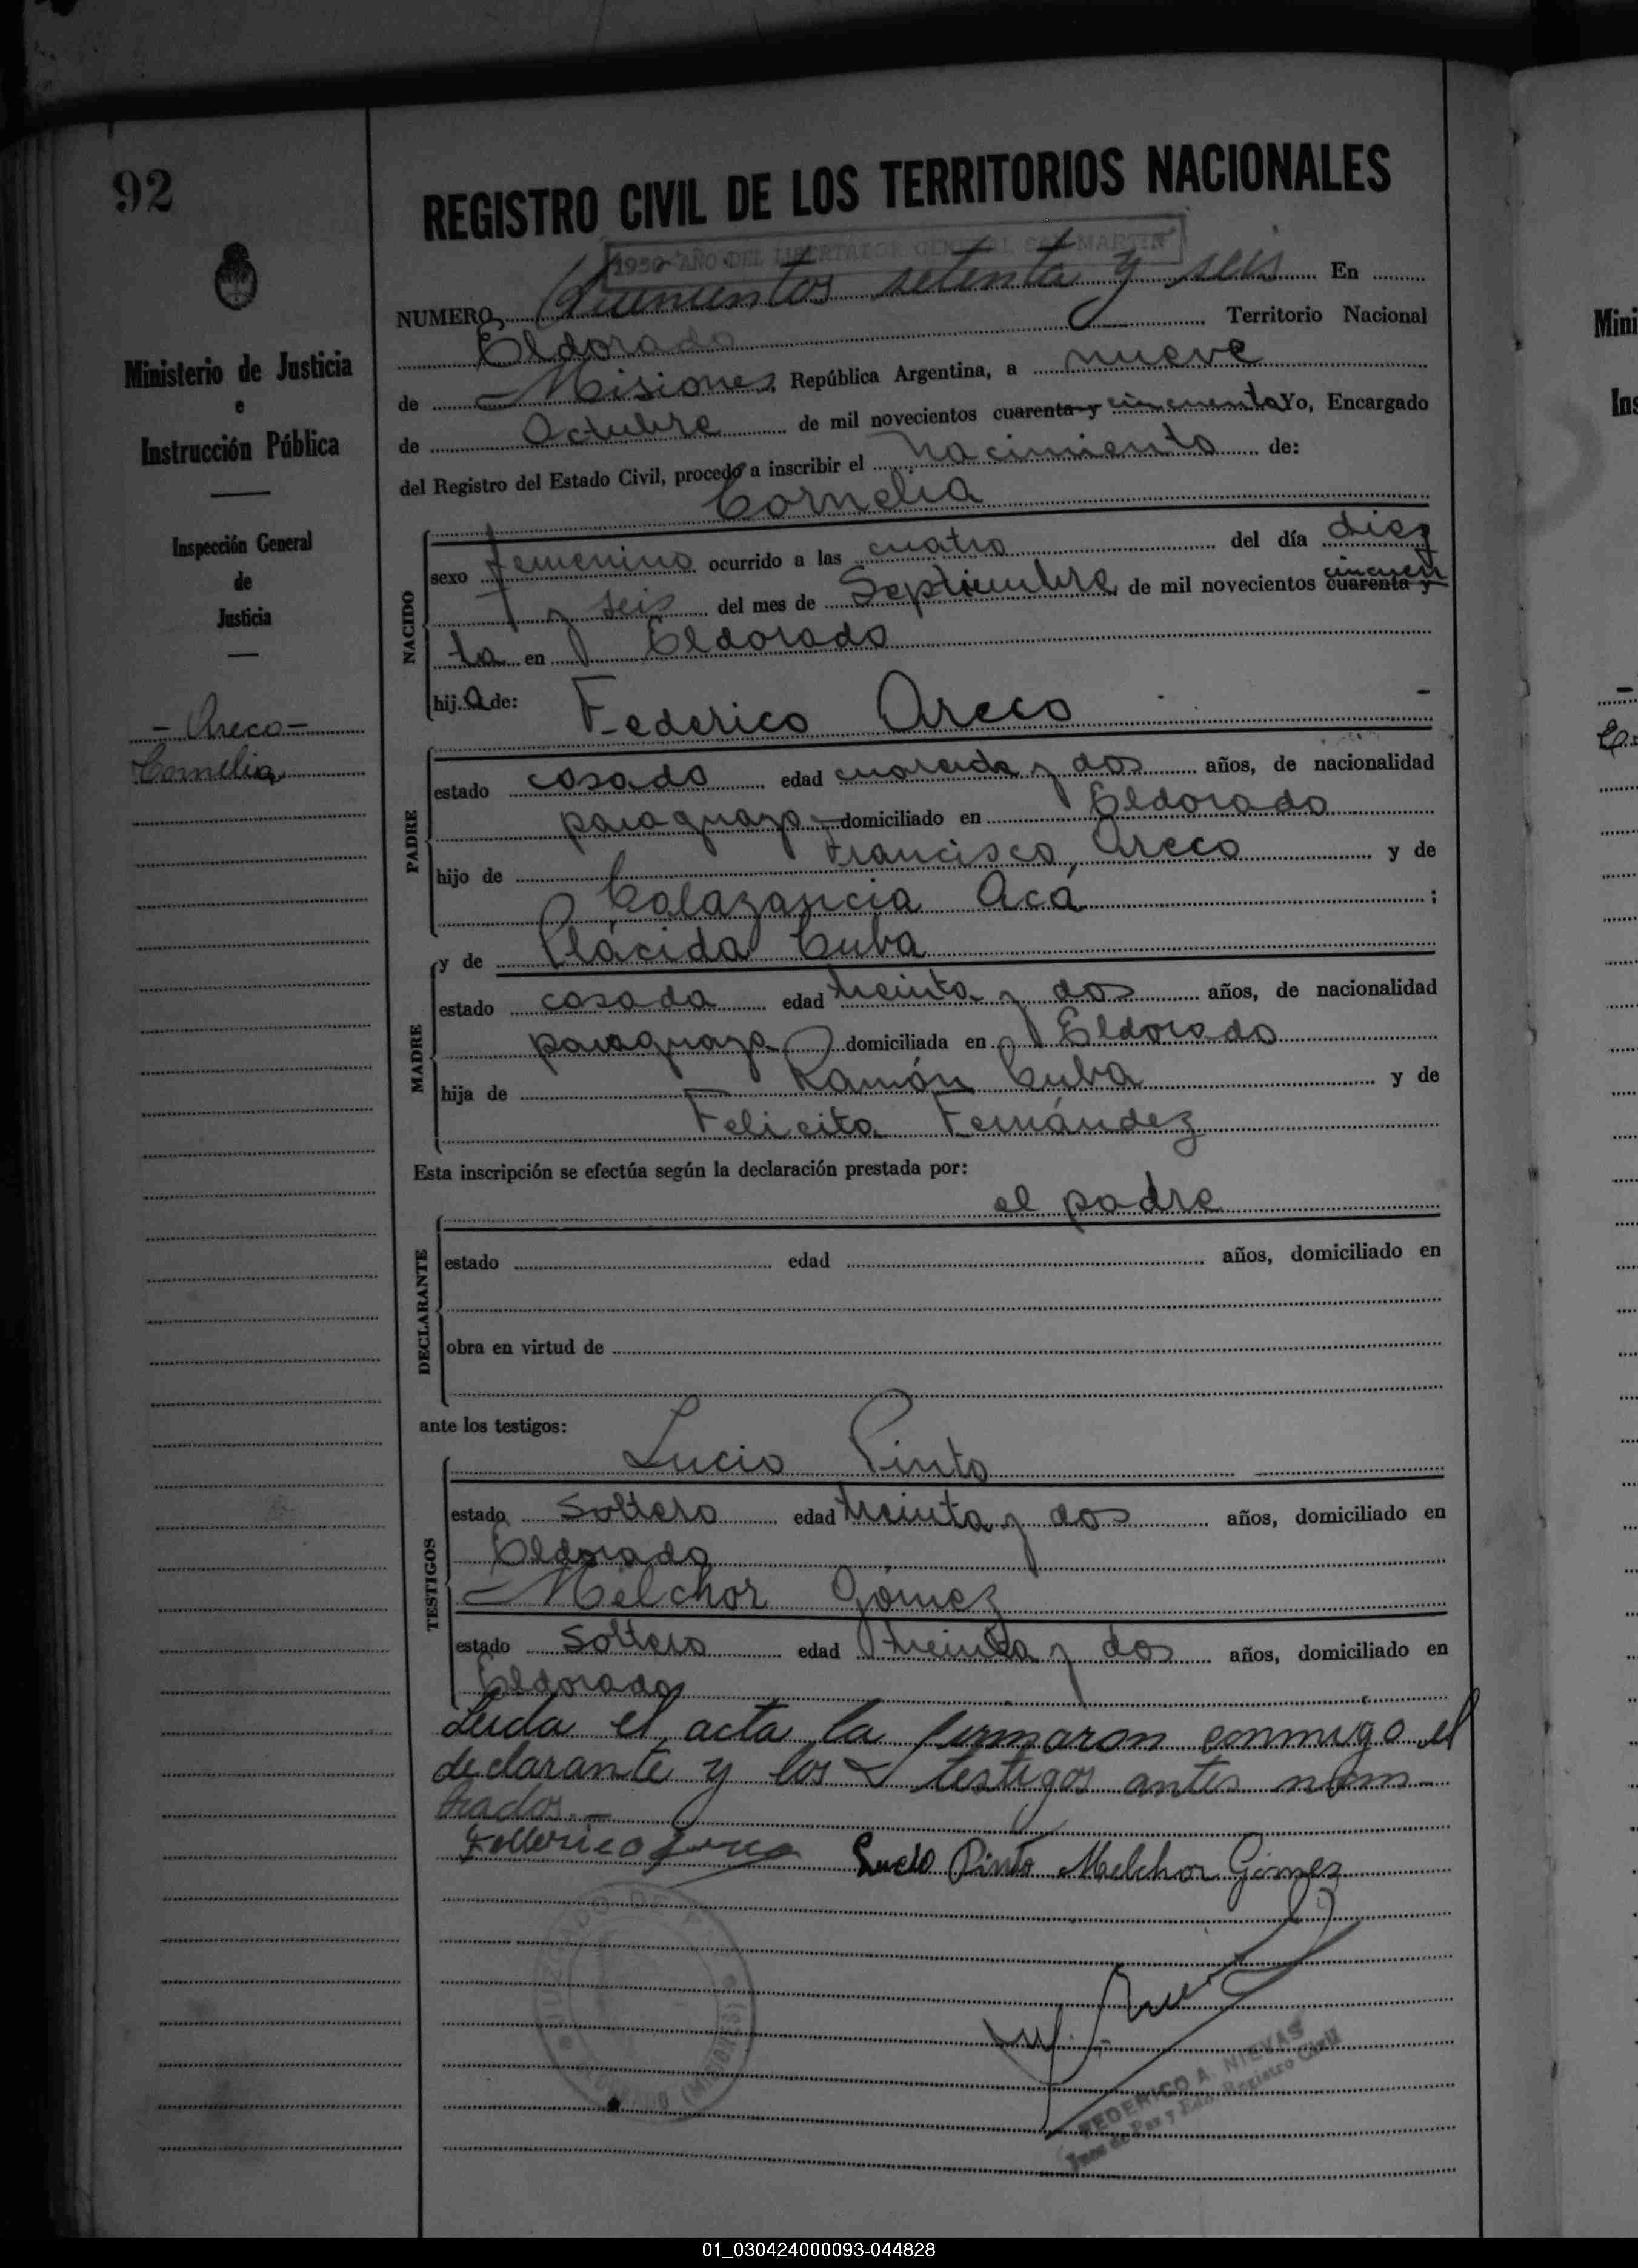 92
REGISTRO CIVIL DE LOS TERRITORIOS NACIONALES
"1950 - AÑO DEL LIBERTADOR GENERAL SAN MARTIN"
NUMERO Quinientos setenta y seis En
Eldorado Territorio Nacional
de Misiones, República Argentina, a nueve
de Octubre de mil novecientos cuarenta y cincuenta Yo, Encargado
del Registro del Estado Civil, procedo a inscribir el nacimiento de:
Cornelia
Ministerio de Justicia
e
Instrucción Pública
Inspección General
de
Justicia
- Areco -
Cornelia
NACIDO
sexo femenino ocurrido a las cuatro del día diez
y seis del mes de Septiembre de mil novecientos cuarenta y cincuen
ta en Eldorado
hija de: Federico Areco
PADRE
estado casado edad cuarenta y dos años, de nacionalidad
paraguaya domiciliado en Eldorado
hijo de Francisco Areco y de
Calazancia Acá ;
y de Plácida Cuba
MADRE
estado casada edad treinta y dos años, de nacionalidad
paraguaya domiciliada en Eldorado
hija de Ramón Cuba y de
Felicita Fernández
Esta inscripción se efectúa según la declaración prestada por:
el padre
DECLARANTE
estado edad años, domiciliado en
obra en virtud de
ante los testigos:
Lucio Pinto
TESTIGOS
estado soltero edad treinta y dos años, domiciliado en
Eldorado
Melchor Gómez
estado soltero edad treinta y dos años, domiciliado en
Eldorado
Leida el acta la firmaron conmigo el
declarante y los testigos antes nom-
brados.-
Federico Areco Lucio Pinto Melchor Gómez
FEDERICO A. NIEVAS
Juez de Paz y Enc. Registro Civil
01_030424000093-044828